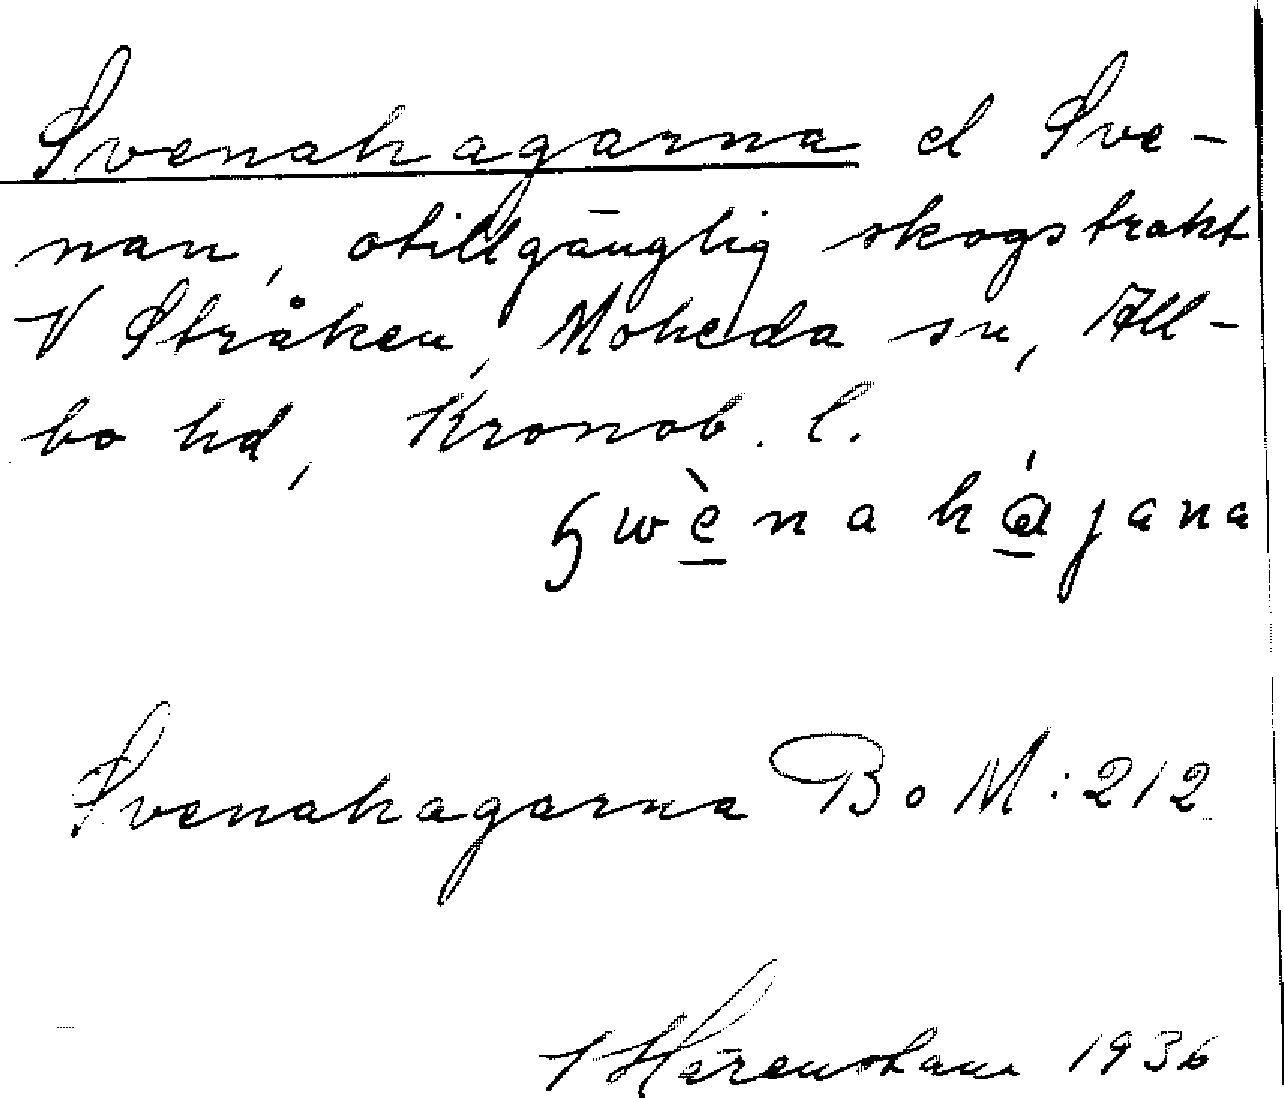 Svenahagarna el Sve-
nan, otillgänglig skogstrakt
V Stråken, Moheda sn, All-
bo hd, Kronob. l.
swènahájana
Svenahagarna BoM:212
1936